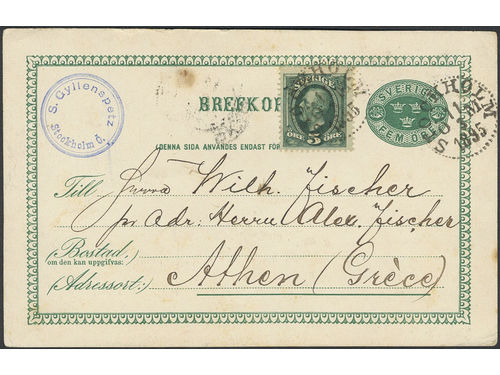 S. Gyllenspetz
Stockholm Ö.
BREFKO
SVERIGE
ÖRE 5 ÖRE
SVERIGE
FEM ÖRE
STOCKHOLM
1895
(DENNA SIDA ANVÄNDES ENDAST FÖR
Till Herrn Wilh. Fischer
pr. adr: Herrn Alex. Fischer
(Bostad:
om den kan uppgifvas:)
Adressort:) Athen (Grèce)